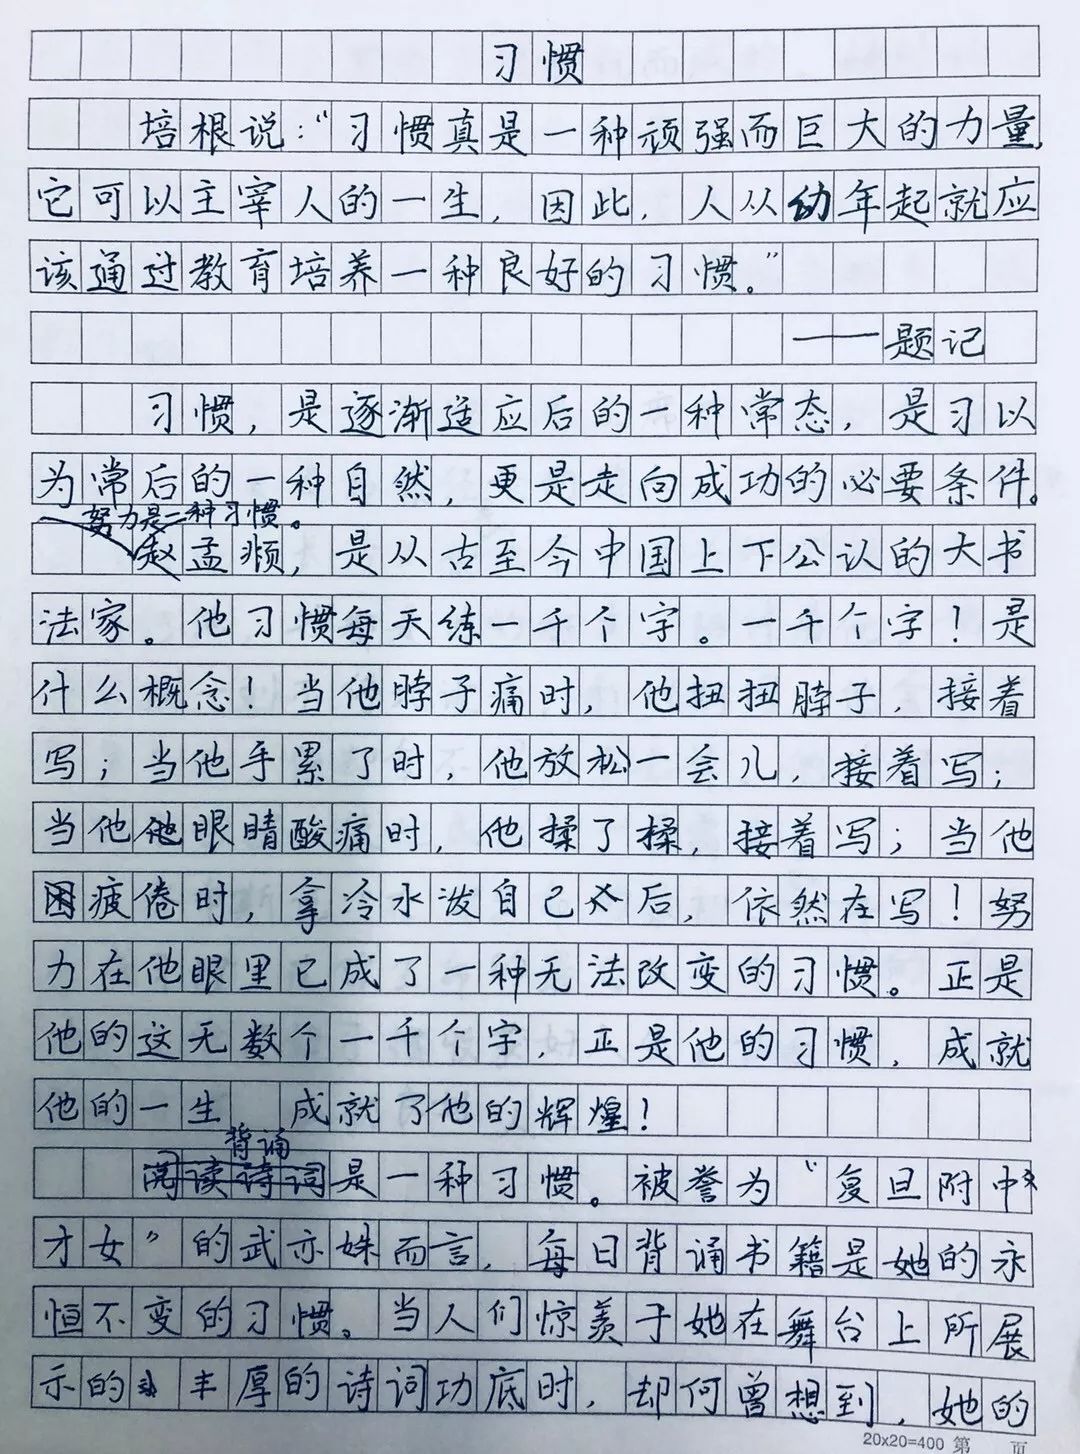 习惯
培根说:“习惯真是一种顽强而巨大的力量,
它可以主宰人的一生,因此,人从幼年起就应
该通过教育培养一种良好的习惯。”
——题记
习惯,是逐渐适应后的一种常态,是习以
为常后的一种自然,更是走向成功的必要条件。
努力是一种习惯。
赵孟頫,是从古至今中国上下公认的大书
法家。他习惯每天练一千个字。一千个字!是
什么概念!当他脖子痛时,他扭扭脖子,接着
写;当他手累了时,他放松一会儿,接着写;
当他他眼睛酸痛时,他揉了揉,接着写;当他
困疲倦时,拿冷水泼自己后,依然在写!努
力在他眼里已成了一种无法改变的习惯。正是
他的这无数个一千个字,正是他的习惯,成就
他的一生,成就了他的辉煌!
背诵
阅读诗词是一种习惯。被誉为“复旦附中
才女”的武亦姝而言,每日背诵书籍是她的永
恒不变的习惯。当人们惊羡于她在舞台上所展
示的丰厚的诗词功底时,却何曾想到,她的
20x20=400 第 页